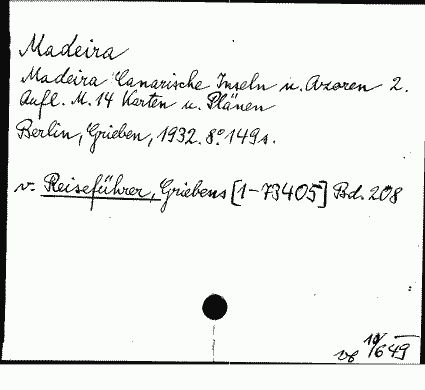 Madeira
Madeira Canarische Inseln u. Azoren 2.
Aufl. M. 14 Karten u. Plänen
Berlin, Grieben, 1932. 8° 149 s.
v. Reiseführer, Griebens [1-73405] Bd. 208